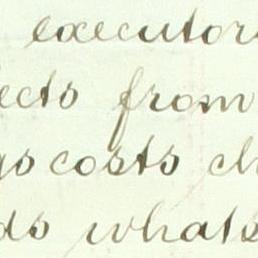 executor
ects from
gs costs ch
ds whats